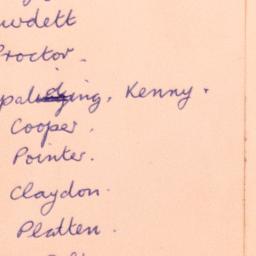 wdett
Proctor.
palding, Kenny.
Cooper.
Pointer.
Claydon.
Platten.